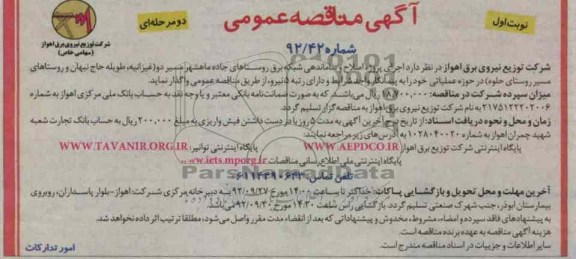 نوبت اول
آگهی مناقصه عمومی
دو مرحله‌ای
شرکت توزیع نیروی برق اهواز
(سهامی خاص)
شماره ۹۲/۴۲
شرکت توزیع نیروی برق اهواز در نظر دارد اجرای پروژه اصلاح و ساماندهی شبکه برق روستاهای جاده ماهشهر(مسیر دو(غیزانیه، طویله حاج نبهان و روستاهای
مسیر روستای حلوه) در حوزه عملیاتی خود را به پیمانکار واجد شرایط و دارای رتبه ۵ نیرو، از طریق مناقصه عمومی واگذار نماید.
میزان سپرده شرکت در مناقصه: ریال می‌باشد که به صورت ضمانت‌نامه بانکی معتبر و یا وجه نقد به حساب بانک ملی مرکزی اهواز به شماره
۲۱۷۵۱۲۲۲۰۲۰۰۶ به نام شرکت توزیع نیروی برق اهواز به مناقصه گزار تسلیم گردد.
زمان و محل و نحوه دریافت اسناد: از تاریخ درج آخرین آگهی به مدت ۵ روز با در دست داشتن فیش واریزی به مبلغ ۲۰۰,۰۰۰ ریال به حساب بانک تجارت شعبه
شهید چمران اهواز به شماره ۱۰۲۸۰۴۰۰۲۰ به آدرس‌های زیر مراجعه نمایند:
پایگاه اینترنتی شرکت توزیع برق اهواز WWW.AEPDCO.IR پایگاه اینترنتی توانیر: WWW.TAVANIR.ORG.IR
پایگاه اینترنتی ملی اطلاع رسانی مناقصات www.iets.mporg.ir
ParsNamadData
تلفن تماس:
آخرین مهلت و محل تحویل و بازگشایی پاکات: حداکثر تا ساعت ۱۴:۰۰ مورخ ۹۲/۰۹/۲۷ به دبیرخانه مرکزی شرکت: اهواز-بلوار پاسداران، روبروی
بیمارستان ابوذر، جنب شهرک صنعتی تسلیم گردد. بازگشایی راس ساعت ۱۴:۳۰ مورخ ۹۲/۰۹/۳۰ می‌باشد.
به پیشنهادهای فاقد سپرده و امضاء، مشروط، مخدوش و پیشنهاداتی که بعد از انقضاء مدت مقرر واصل می‌شود، مطلقا ترتیب اثر داده نخواهد شد.
هزینه آگهی مناقصه به عهده برنده مناقصه است.
سایر اطلاعات و جزییات در اسناد مناقصه مندرج است.
امور تدارکات